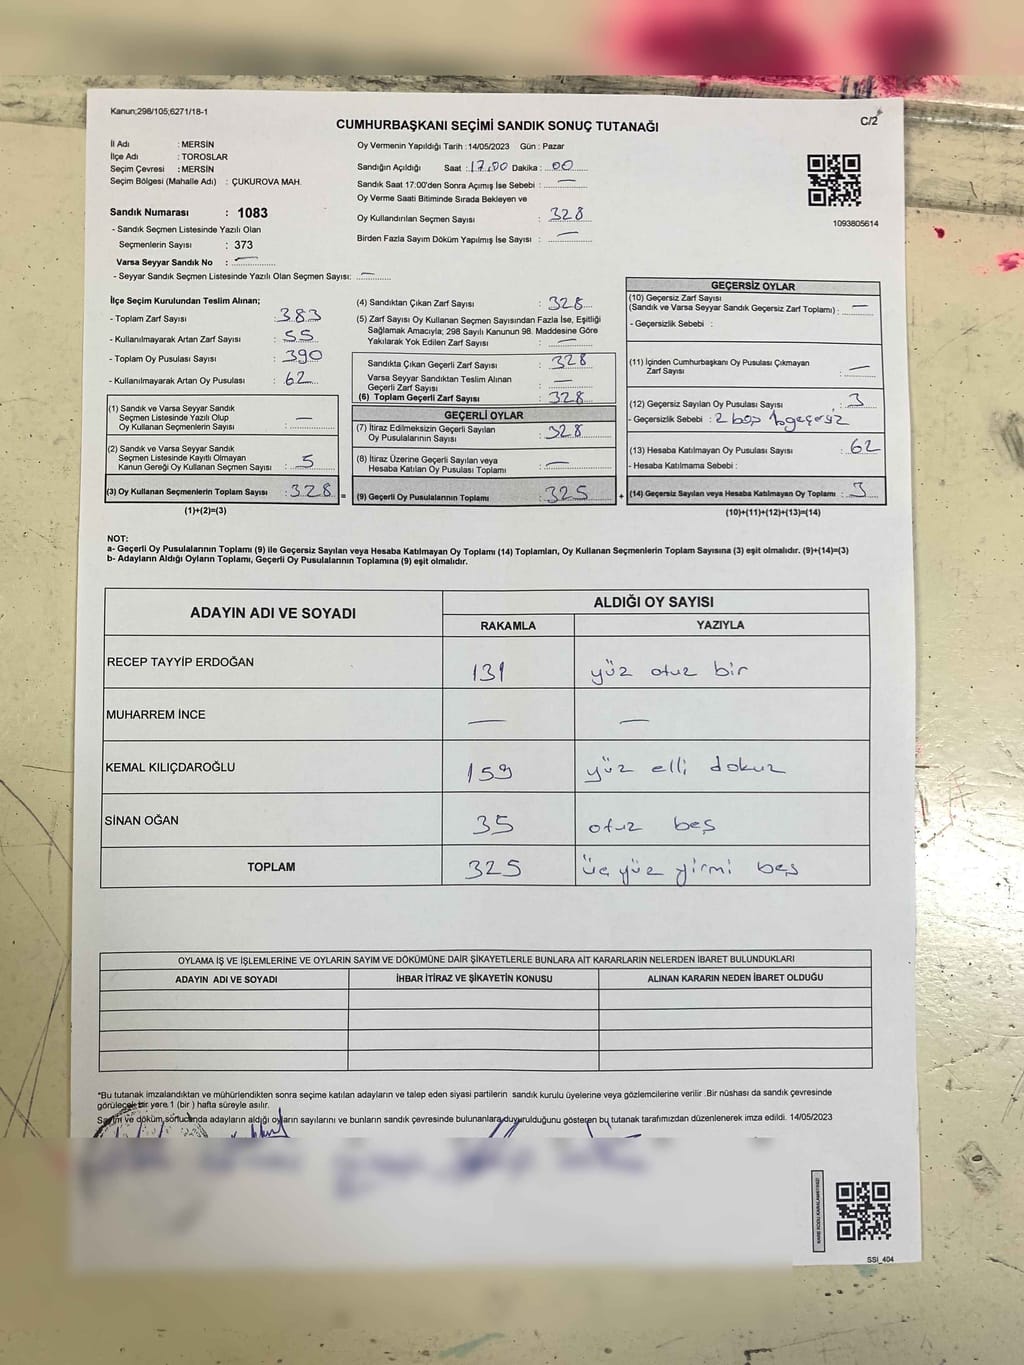 Kanun;298/105;6271/18-1
CUMHURBAŞKANI SEÇİMİ SANDIK SONUÇ TUTANAĞI
C/2
İl Adı : MERSİN
İlçe Adı : TOROSLAR
Seçim Çevresi : MERSİN
Seçim Bölgesi (Mahalle Adı) : ÇUKUROVA MAH.
Sandık Numarası : 1083
- Sandık Seçmen Listesinde Yazılı Olan
Seçmenlerin Sayısı : 373
Varsa Seyyar Sandık No : —
- Seyyar Sandık Seçmen Listesinde Yazılı Olan Seçmen Sayısı: —
Oy Vermenin Yapıldığı Tarih :14/05/2023 Gün : Pazar
Sandığın Açıldığı Saat : 17.00 Dakika : 00
Sandık Saat 17:00'den Sonra Açımış İse Sebebi : —
Oy Verme Saati Bitiminde Sırada Bekleyen ve
Oy Kullandırılan Seçmen Sayısı : 328
Birden Fazla Sayım Döküm Yapılmış İse Sayısı : —
1093805614
İlçe Seçim Kurulundan Teslim Alınan;
- Toplam Zarf Sayısı : 383
- Kullanılmayarak Artan Zarf Sayısı : 55
- Toplam Oy Pusulası Sayısı : 390
- Kullanılmayarak Artan Oy Pusulası : 62
(1) Sandık ve Varsa Seyyar Sandık
Seçmen Listesinde Yazılı Olup
Oy Kullanan Seçmenlerin Sayısı : —
(2) Sandık ve Varsa Seyyar Sandık
Seçmen Listesinde Kayıtlı Olmayan
Kanun Gereği Oy Kullanan Seçmen Sayısı : 5
(3) Oy Kullanan Seçmenlerin Toplam Sayısı : 328 =
(1)+(2)=(3)
(4) Sandıktan Çıkan Zarf Sayısı : 328
(5) Zarf Sayısı Oy Kullanan Seçmen Sayısından Fazla İse, Eşitliği
Sağlamak Amacıyla; 298 Sayılı Kanunun 98. Maddesine Göre
Yakılarak Yok Edilen Zarf Sayısı : —
Sandıkta Çıkan Geçerli Zarf Sayısı : 328
Varsa Seyyar Sandıktan Teslim Alınan
Geçerli Zarf Sayısı : —
(6) Toplam Geçerli Zarf Sayısı : 328
GEÇERLİ OYLAR
(7) İtiraz Edilmeksizin Geçerli Sayılan
Oy Pusulalarının Sayısı : 328
(8) İtiraz Üzerine Geçerli Sayılan veya
Hesaba Katılan Oy Pusulası Toplamı : —
(9) Geçerli Oy Pusulalarının Toplamı : 325 +
GEÇERSİZ OYLAR
(10) Geçersiz Zarf Sayısı
(Sandık ve Varsa Seyyar Sandık Geçersiz Zarf Toplamı) : —
- Geçersizlik Sebebi :
(11) İçinden Cumhurbaşkanı Oy Pusulası Çıkmayan
Zarf Sayısı : —
(12) Geçersiz Sayılan Oy Pusulası Sayısı : 3
- Geçersizlik Sebebi : 2 boş 1 geçersiz
(13) Hesaba Katılmayan Oy Pusulası Sayısı : 62
- Hesaba Katılmama Sebebi :
(14) Geçersiz Sayılan veya Hesaba Katılmayan Oy Toplamı : 3
(10)+(11)+(12)+(13)=(14)
NOT:
a- Geçerli Oy Pusulalarının Toplamı (9) ile Geçersiz Sayılan veya Hesaba Katılmayan Oy Toplamı (14) Toplamları, Oy Kullanan Seçmenlerin Toplam Sayısına (3) eşit olmalıdır. (9)+(14)=(3)
b- Adayların Aldığı Oyların Toplamı, Geçerli Oy Pusulalarının Toplamına (9) eşit olmalıdır.
ADAYIN ADI VE SOYADI ALDIĞI OY SAYISI
RAKAMLA YAZIYLA
RECEP TAYYİP ERDOĞAN 131 yüz otuz bir
MUHARREM İNCE — —
KEMAL KILIÇDAROĞLU 159 yüz elli dokuz
SİNAN OĞAN 35 otuz beş
TOPLAM 325 üç yüz yirmi beş
OYLAMA İŞ VE İŞLEMLERİNE VE OYLARIN SAYIM VE DÖKÜMÜNE DAİR ŞİKAYETLERLE BUNLARA AİT KARARLARIN NELERDEN İBARET BULUNDUKLARI
ADAYIN ADI VE SOYADI İHBAR İTİRAZ VE ŞİKAYETİN KONUSU ALINAN KARARIN NEDEN İBARET OLDUĞU
*Bu tutanak imzalandıktan ve mühürlendikten sonra seçime katılan adayların ve talep eden siyasi partilerin sandık kurulu üyelerine veya gözlemcilerine verilir .Bir nüshası da sandık çevresinde
görülecek bir yere 1 (bir ) hafta süreyle asılır.
Sayım ve döküm sonucunda adayların aldığı oyların sayılarını ve bunların sandık çevresinde bulunanlara duyurulduğunu gösteren bu tutanak tarafımızdan düzenlenerek imza edildi. 14/05/2023
SSI_404